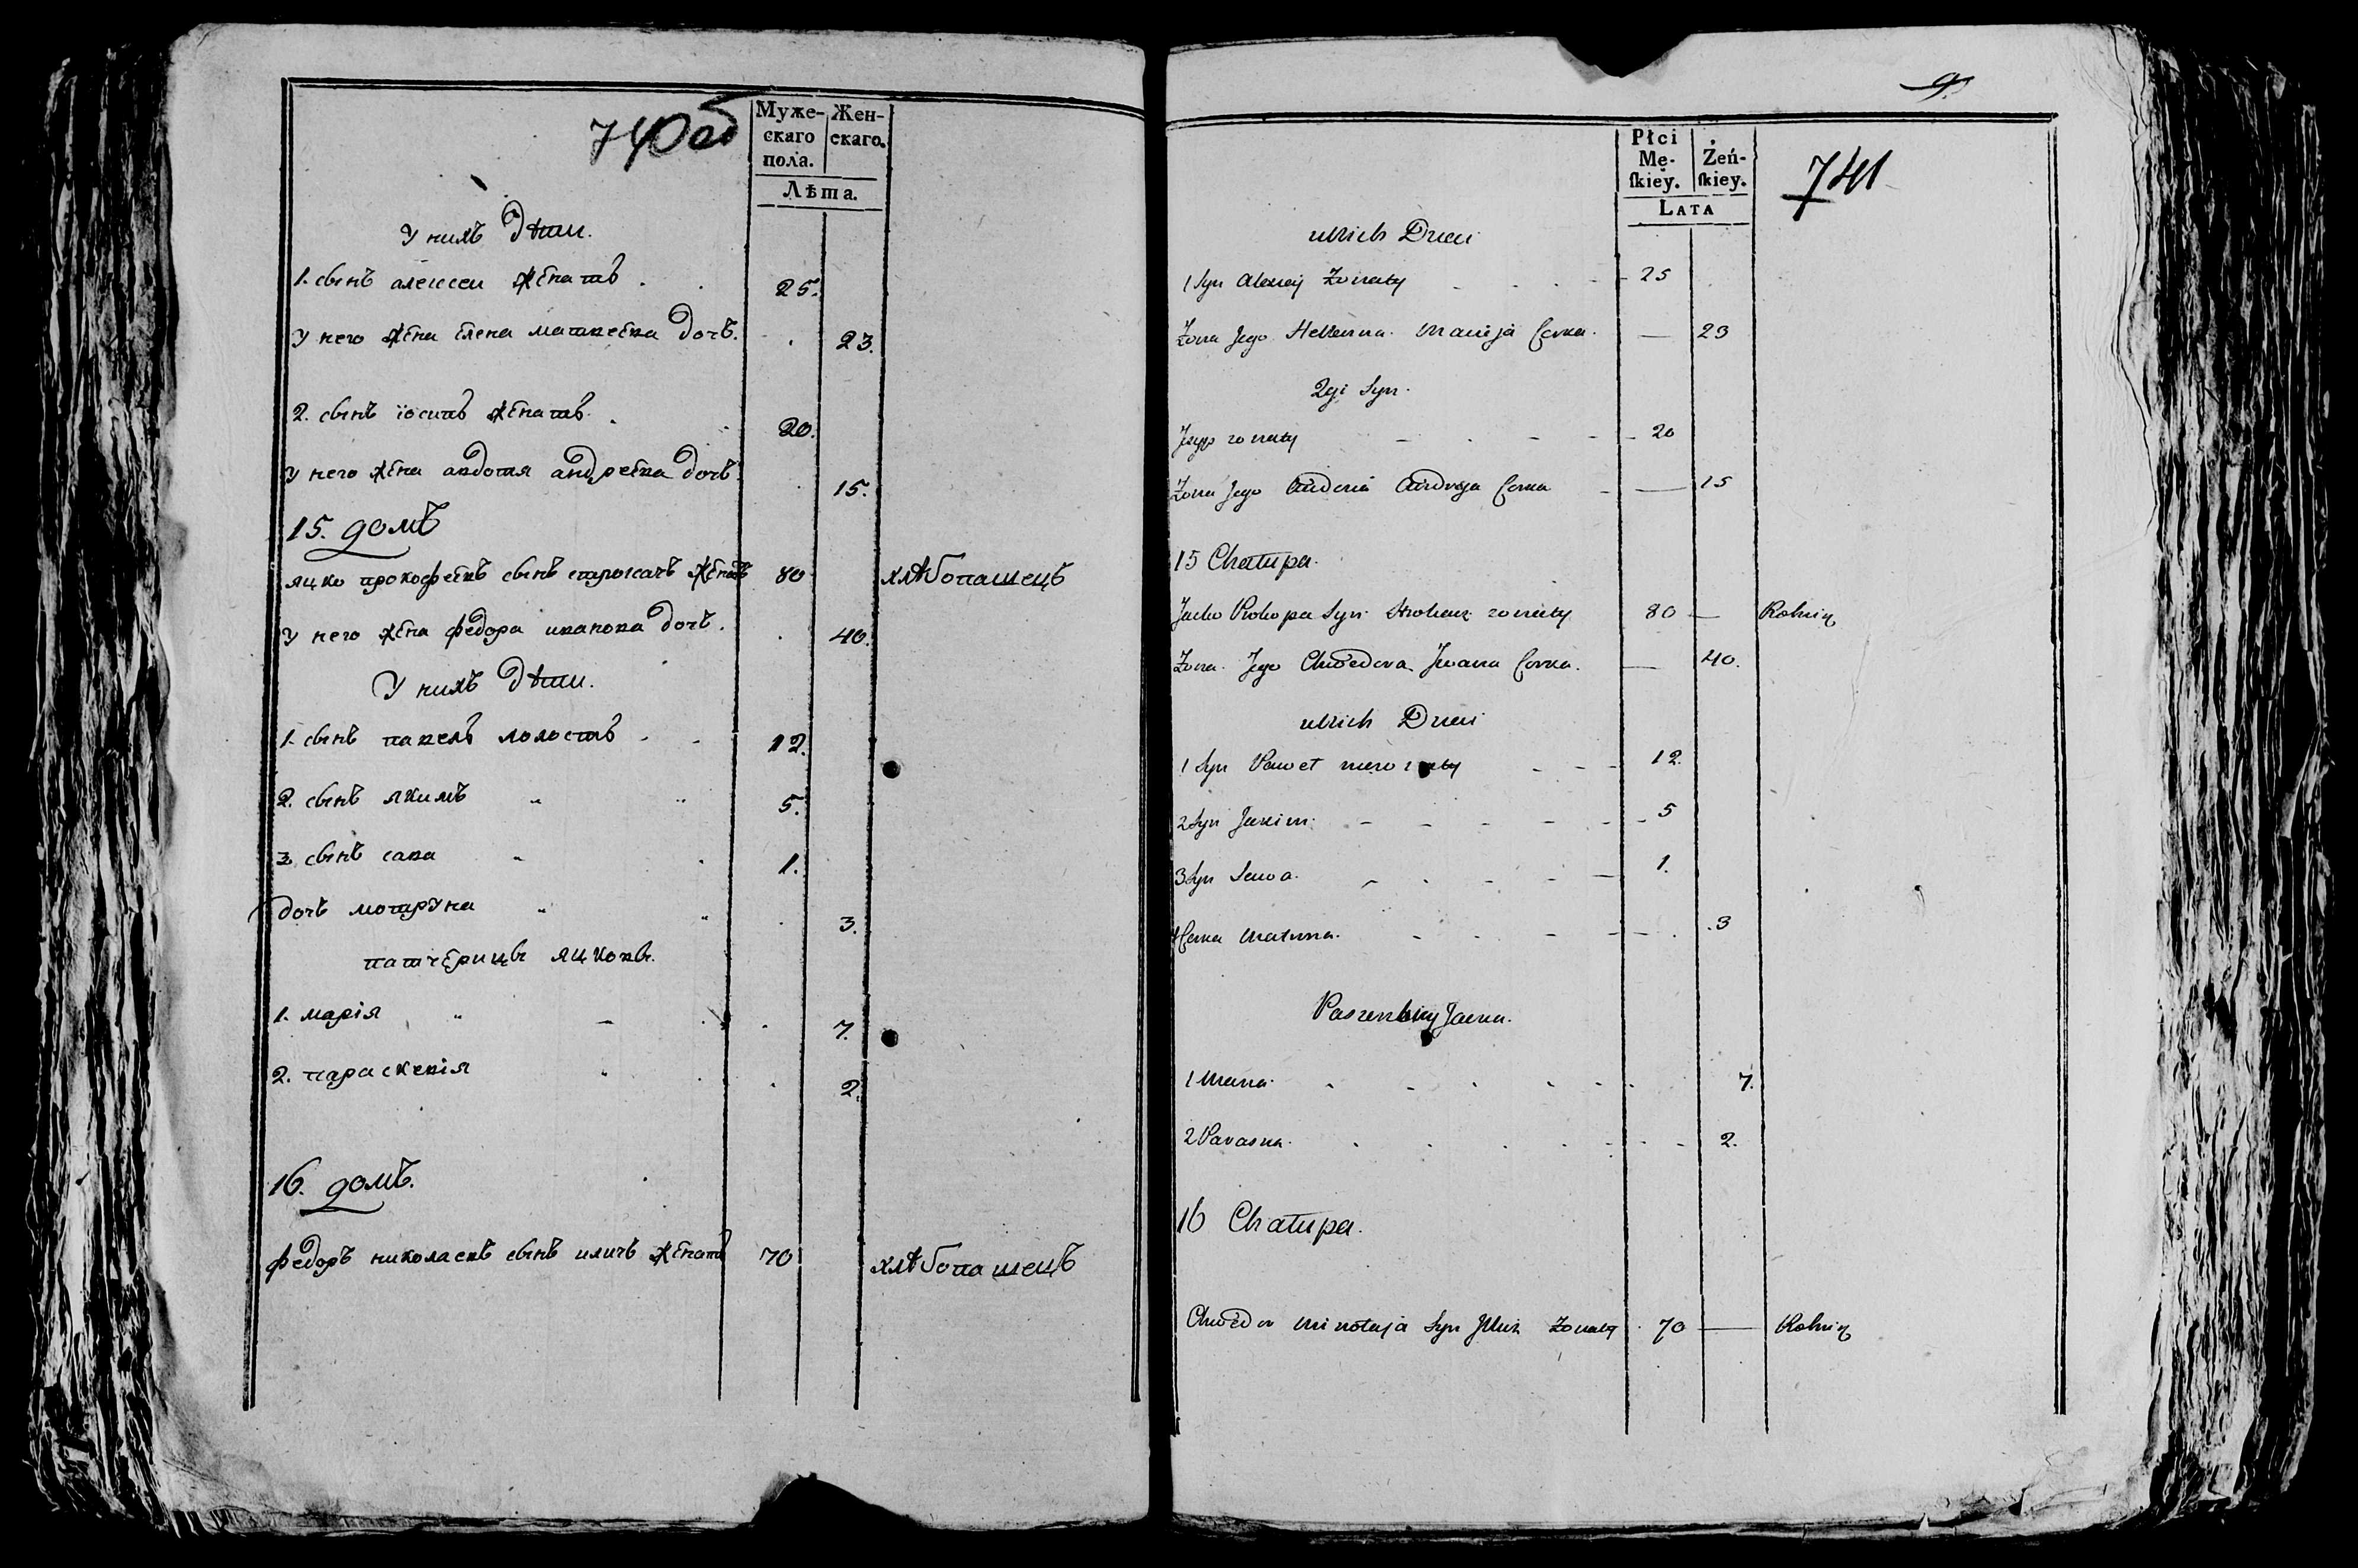 740об
Муже-
скаго
пола.
Жен-
скаго.
Лѣта.
У нихъ дѣти.
1. сынъ алексеи женатъ 25.
У него жена елена матвеева дочь. 23.
2. сынъ іосипъ женатъ. 20.
У него жена авдотя андреева дочь 15.
15. домъ
яцко прокофьевъ сынъ женатъ 80 хлѣбопашецъ
У него жена федора иванова дочь. 40.
У нихъ дѣти.
1. сынъ павелъ холостъ 12.
2. сынъ якимъ 5.
3. сынъ сава 1.
дочь мотруна 3.
патчерицы яцковы.
1. марія 7.
2. параскевія 2.
16. домъ.
федоръ николаевъ сынъ иличъ женатъ 70 хлѣбопашецъ
9.
741
Płci
Mę-
ſkiey.
Żeń-
ſkiey.
LATA
u Nich Dzieci
1 Syn Alexiey Zonaty 25
Zona Jego Hellenna Macieja Corka. 23
2gi Syn.
Jozyp zonaty 20
Zona Jego Audocia Andreja Corka 15
15 Chatupa.
Jacko Prokopa Syn zonaty 80 Rolnik
Zona Jego Chwedora Jwana Corka. 40.
u Nich Dzieci
1 Syn Paweł niezonaty 12.
2 Syn Jakim. 5
3 Syn Sawa. 1.
Corka Matruna. 3
Jacka.
1 Maria. 7.
2 Paraska. 2.
16 Chatupa.
Chwedor Mikołaja Syn Jllicz Zonaty 70 Rolnik